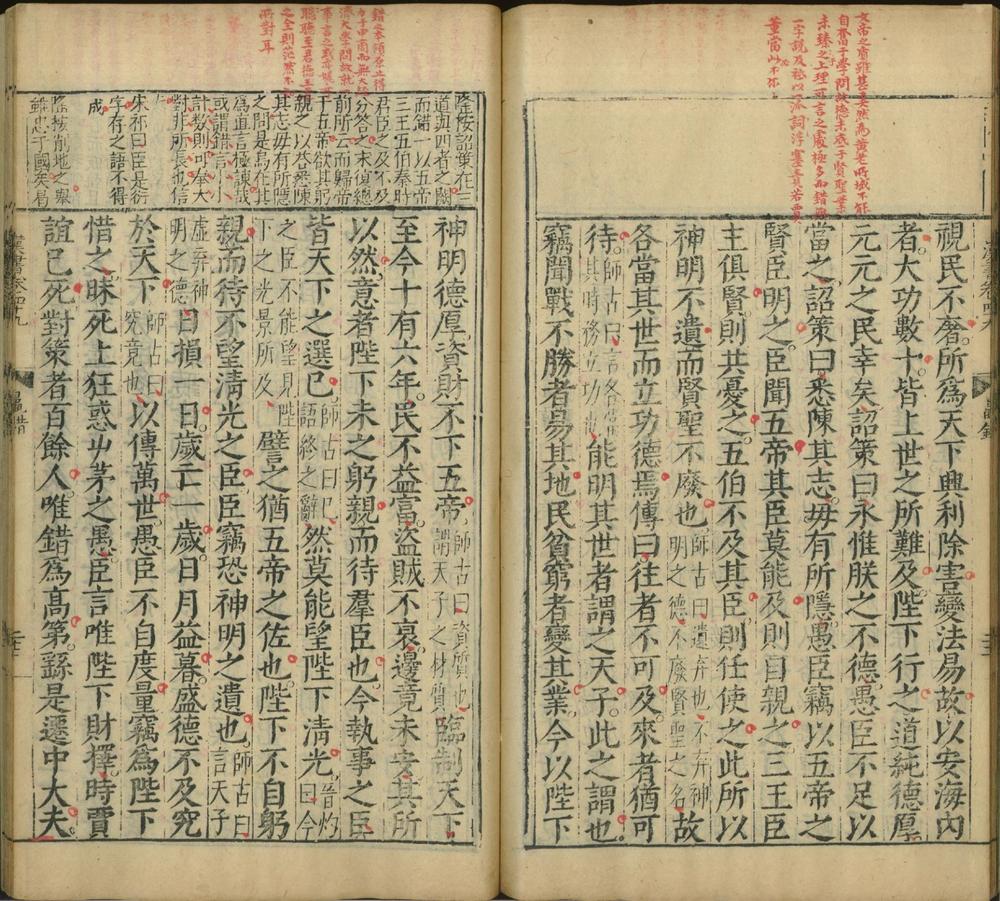 文帝之資雖甚美然為黃老所域不能
自奮
學問故德未底于賢聖業
未臻之上理可言之處極多而錯無
一字說及
以添詞浮蔓責
賈
董當
視民不奢所爲天下興利除害變法易故以安海內
者大功數十皆上世之所難及陛下行之道純德厚
元元之民幸矣詔策曰永惟朕之不德愚臣不足以
當之詔策曰悉陳其志毋有所隱愚臣竊以五帝之
賢臣明之臣聞五帝其臣莫能及則自親之三王臣
主俱賢則共憂之五伯不及其臣則任使之此所以
神明不遺而賢聖不廢也師古曰遺弃也不弃神明之德不廢賢聖之名故
各當其世而立功德焉傳曰往者不可及來者猶可
待師古曰言各當其時務立功也能明其世者謂之天子此之謂也
竊聞戰不勝者易其地民貧窮者變其業今以陛下
漢書卷四十九
鼂錯
錯之本領原止得
而無大
濟大學問故就
事言之
聽聽至君德王
之全則茫然不
所對耳
隆按詔策在三
道與四者之闕
而錯一以五帝
三王五伯秦時
君臣之及不及
分答之末復總
前所云而歸帝
于五帝欲其躬
親之以答悉陳
其志毋有所隱
之問是烏在其
爲直言極諫哉
或謂錯言小小
計數則可奉大
對非所長也信
朱祁曰臣是衍
字存之語不得
成
隆按削地之舉
雖忠于國矣曷
神明德厚資財不下五帝師古曰資質也謂天子之材質臨制天下
至今十有六年民不益富盜賊不衰邊竟未安其所
以然意者陛下未之躬親而待羣臣也今執事之臣
皆天下之選已師古曰已語終之辭然莫能望陛下淸光晉灼曰今
之臣不能望見陛下之光景所及譬之猶五帝之佐也陛下不自躬
親而待不望淸光之臣臣竊恐神明之遺也師古曰言天子
虛弃神明之德日損一日歲亡一歲日月益暮盛德不及究
於天下師古曰究竟也以傳萬世愚臣不自度量竊爲陛下
惜之昧死上狂惑屮茅之愚臣言唯陛下財擇時賈
誼已死對策者百餘人唯錯爲高第繇是遷中大夫
漢書卷四十九
鼂錯